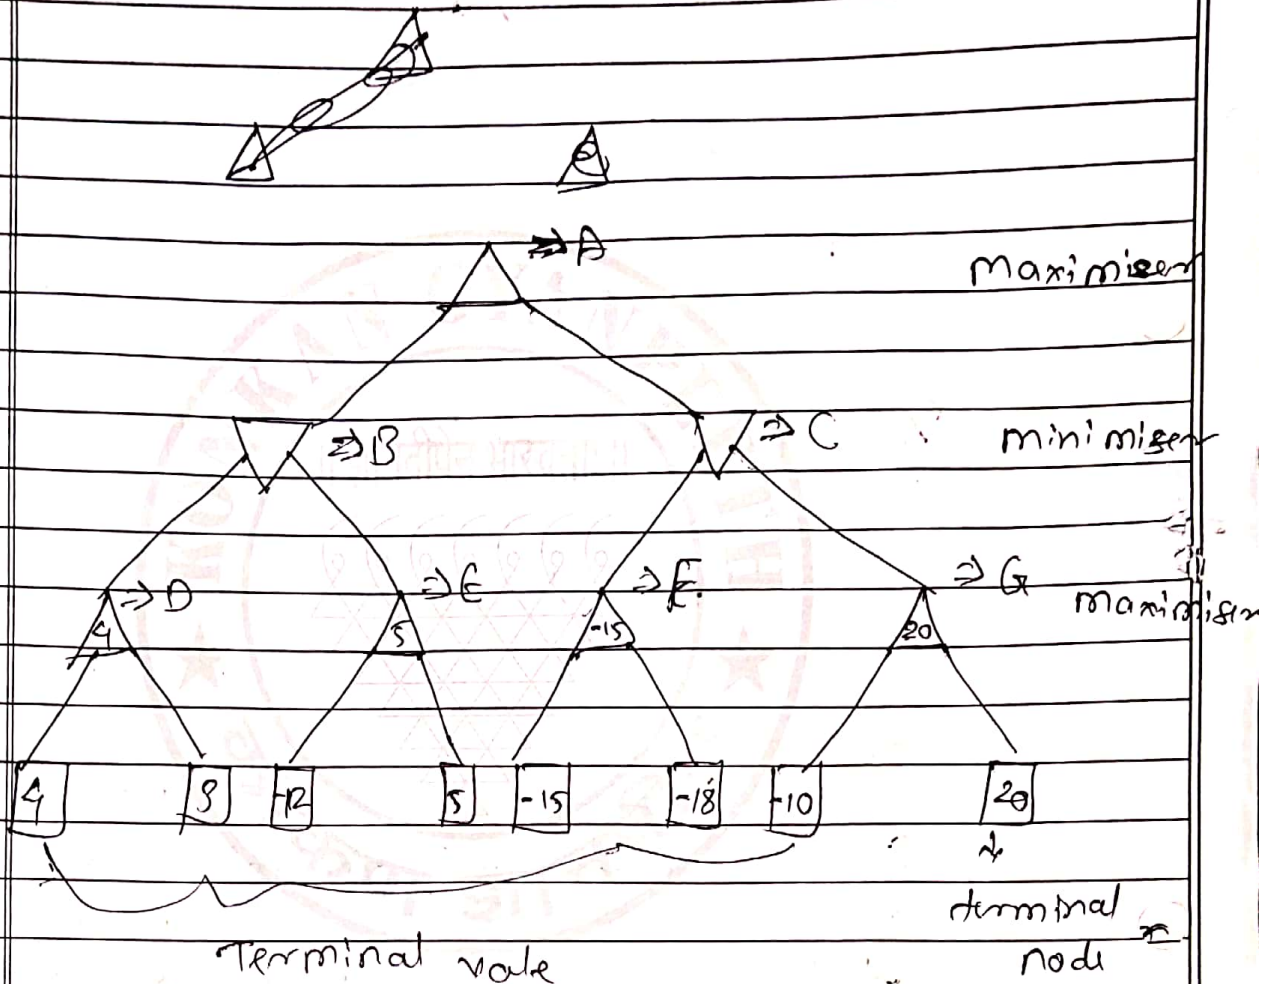 ⇒ A
Maximiser
⇒ B
⇒ C
minimiser
⇒ D
⇒ E
⇒ F.
⇒ G
maximiser
4
5
-15
20
4
9
-12
5
-15
-18
-10
20
terminal
node
Terminal vale